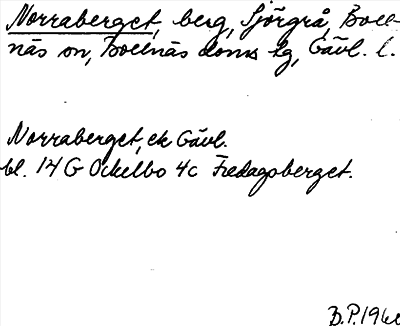 Norraberget, berg, Sjörgrå, Boll-
näs sn, Bollnäs doms lg, Gävl. l.
Norraberget, ek Gävl.
bl. 14 G Ockelbo 4c Fredagsberget.
B.P.196